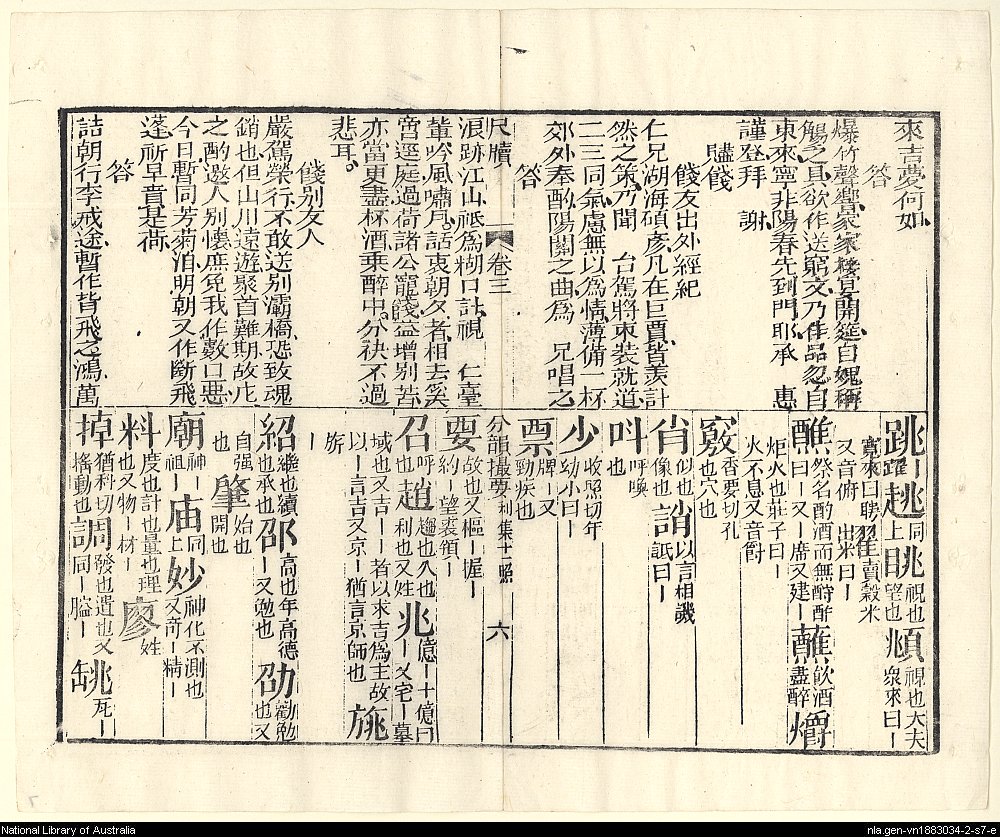 來吉夢何如
答
爆竹聲聲家家樓宴開筵自媿稱
觴之具欲作送窮文乃佳品忽自
東來寧非陽春先到門耶承 惠
謹登拜 謝
賻餞
餞友出外經紀
仁兄湖海碩彥凡在巨賈皆羨計
然之策乃聞 台駕將束裝就道
二三同氣慮無以為情薄備一杯
郊外奉酌陽關之曲為 兄唱之
答
浪跡江山祗為糊口計視 仁臺
董吟風嘯月話衷朝夕者相去奚
啻逕庭過荷諸公寵餞益增別苦
亦當更盡杯酒乘醉中分袂不過
悲耳
餞別友人
嚴駕榮行不敢送別灞橋恐致魂
銷也但山川遠遊聚首難期故卮
之酌邀人別懷庶免我作數口惡
今日暫同芳菊泊明朝又作斷飛
蓬祈早賁是荷
答
詰朝行李戒途暫作背飛之鴻萬
尺牘 卷三
跳ー躍趒同上眺視也望也頫視也大夫衆來曰ー
寬來曰覜糶賣穀米
又音俯 出米曰ー
醮祭名酌酒而無酧酢曰ー又ー席又建ー蘸飲酒盡醉爝
炬火也莊子曰ー
火不息又音爵
竅香要切孔也穴也
肖似也像也誚以言相譏詆曰ー
叫呼喚也
少收照切年幼小曰ー
票牌ー又勁疾也
分韻撮要利集十二照 六
要故也又樞ー握約ー望裘領ー
召呼ー也趙趨也久也利也又姓兆億ー十億曰ー又宅ー墓
域也又吉ー者以求吉為主故
以ー言吉又京ー猶言京師也旐
旂
ー
紹繼也續也承也卲高也年高德ー又勉也劭勸勉也又
自强
也肇始也開也
廟神ー祖ー庙同上妙神化不測也又奇ー精ー
料度也計也量也理也又物ー材ー廖姓
掉猶科切搖動也調發也遣也又同ー脇ー銚瓦ー
National Library of Australia
nla.gen-vn1883034-2-s7-e